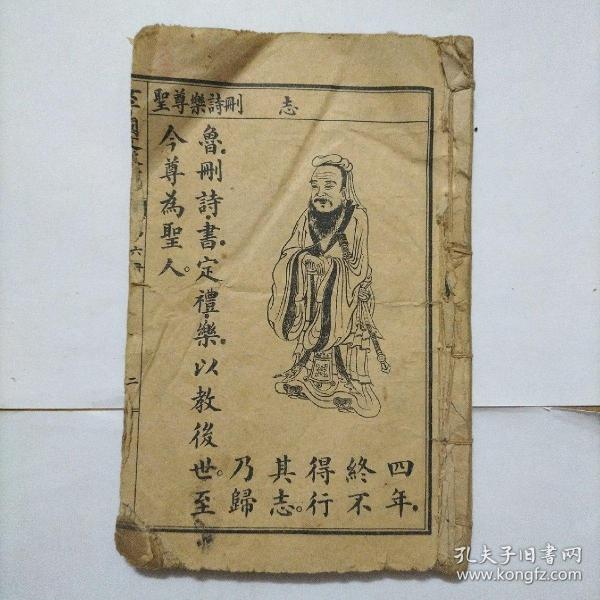 志 刪詩樂尊聖
四年。
終不
得行
其志。
乃歸
魯。刪詩書。定禮樂。以教後世。至
今尊為聖人。
二
孔夫子旧书网
www.kongfz.com